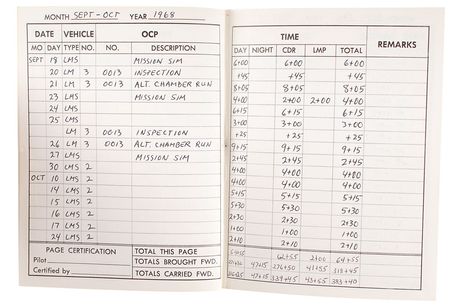 MONTH SEPT-OCT YEAR 1968
DATE VEHICLE OCP
MO DAY TYPE NO. NO. DESCRIPTION
SEPT 18 LMS MISSION SIM
20 LM 3 0013 INSPECTION
21 LM 3 0013 ALT. CHAMBER RUN
23 LMS MISSION SIM
24 LMS
25 LMS
LM 3 0013 INSPECTION
26 LM 3 0013 ALT. CHAMBER RUN
27 LMS MISSION SIM
30 LMS 2
OCT 10 LMS 2
14 LMS 2
15 LMS 2
16 LMS 2
17 LMS 2
24 LMS 2
PAGE CERTIFICATION TOTAL THIS PAGE
Pilot TOTALS BROUGHT FWD.
Certified by TOTALS CARRIED FWD.
TIME REMARKS
DAY NIGHT CDR LMP TOTAL
6+00 6+00 6+00
+45 +45 +45
8+05 8+05 8+05
4+00 2+00 2+00 4+00
6+15 6+15 6+15
3+00 3+00 3+00
+25 +25 +25
9+15 9+15 9+15
2+45 2+45 2+45
4+00 4+00 4+00
4+00 4+00 4+00
5+15 5+15 5+15
5+30 5+30 5+30
2+30 2+30 2+30
1+00 1+00 1+00
2+10 2+10 2+10
62+55 2+00 64+55
47+15 276+50 41+55 318+45
47+15 339+45 43+55 383+40